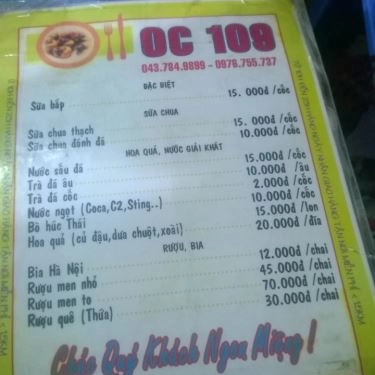 OC 109
043.784.9899 - 0976.755.737
ĐẶC BIỆT
Sữa bắp 15.000đ/cốc
SỮA CHUA
Sữa chua thạch 15.000đ/cốc
Sữa chua đánh đá 10.000đ/cốc
HOA QUẢ, NƯỚC GIẢI KHÁT
Nước sấu đá 15.000đ/cốc
Trà đá âu 10.000đ/âu
Trà đá cốc 2.000đ/cốc
Nước ngọt (Coca,C2,Sting..) 10.000đ/cốc
Bò húc Thái 15.000đ/lon
Hoa quả (củ đậu,dưa chuột,xoài) 20.000đ/đĩa
RƯỢU, BIA
Bia Hà Nội 12.000đ/chai
Rượu men nhỏ 45.000đ/chai
Rượu men to 70.000đ/chai
Rượu quê (Thứa) 30.000đ/chai
Chúc Quý Khách Ngon Miệng!